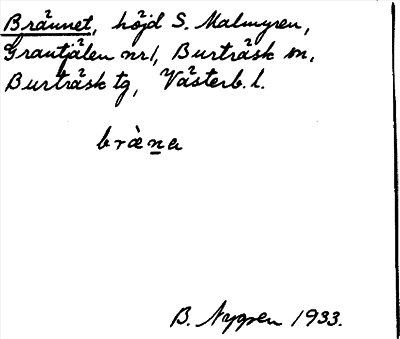 Brännet, höjd S. Malmyren,
Grantjälen nr 1, Burträsk sn,
Burträsk tg, Västerb. l.
bræ̀na
B. Nygren 1933.